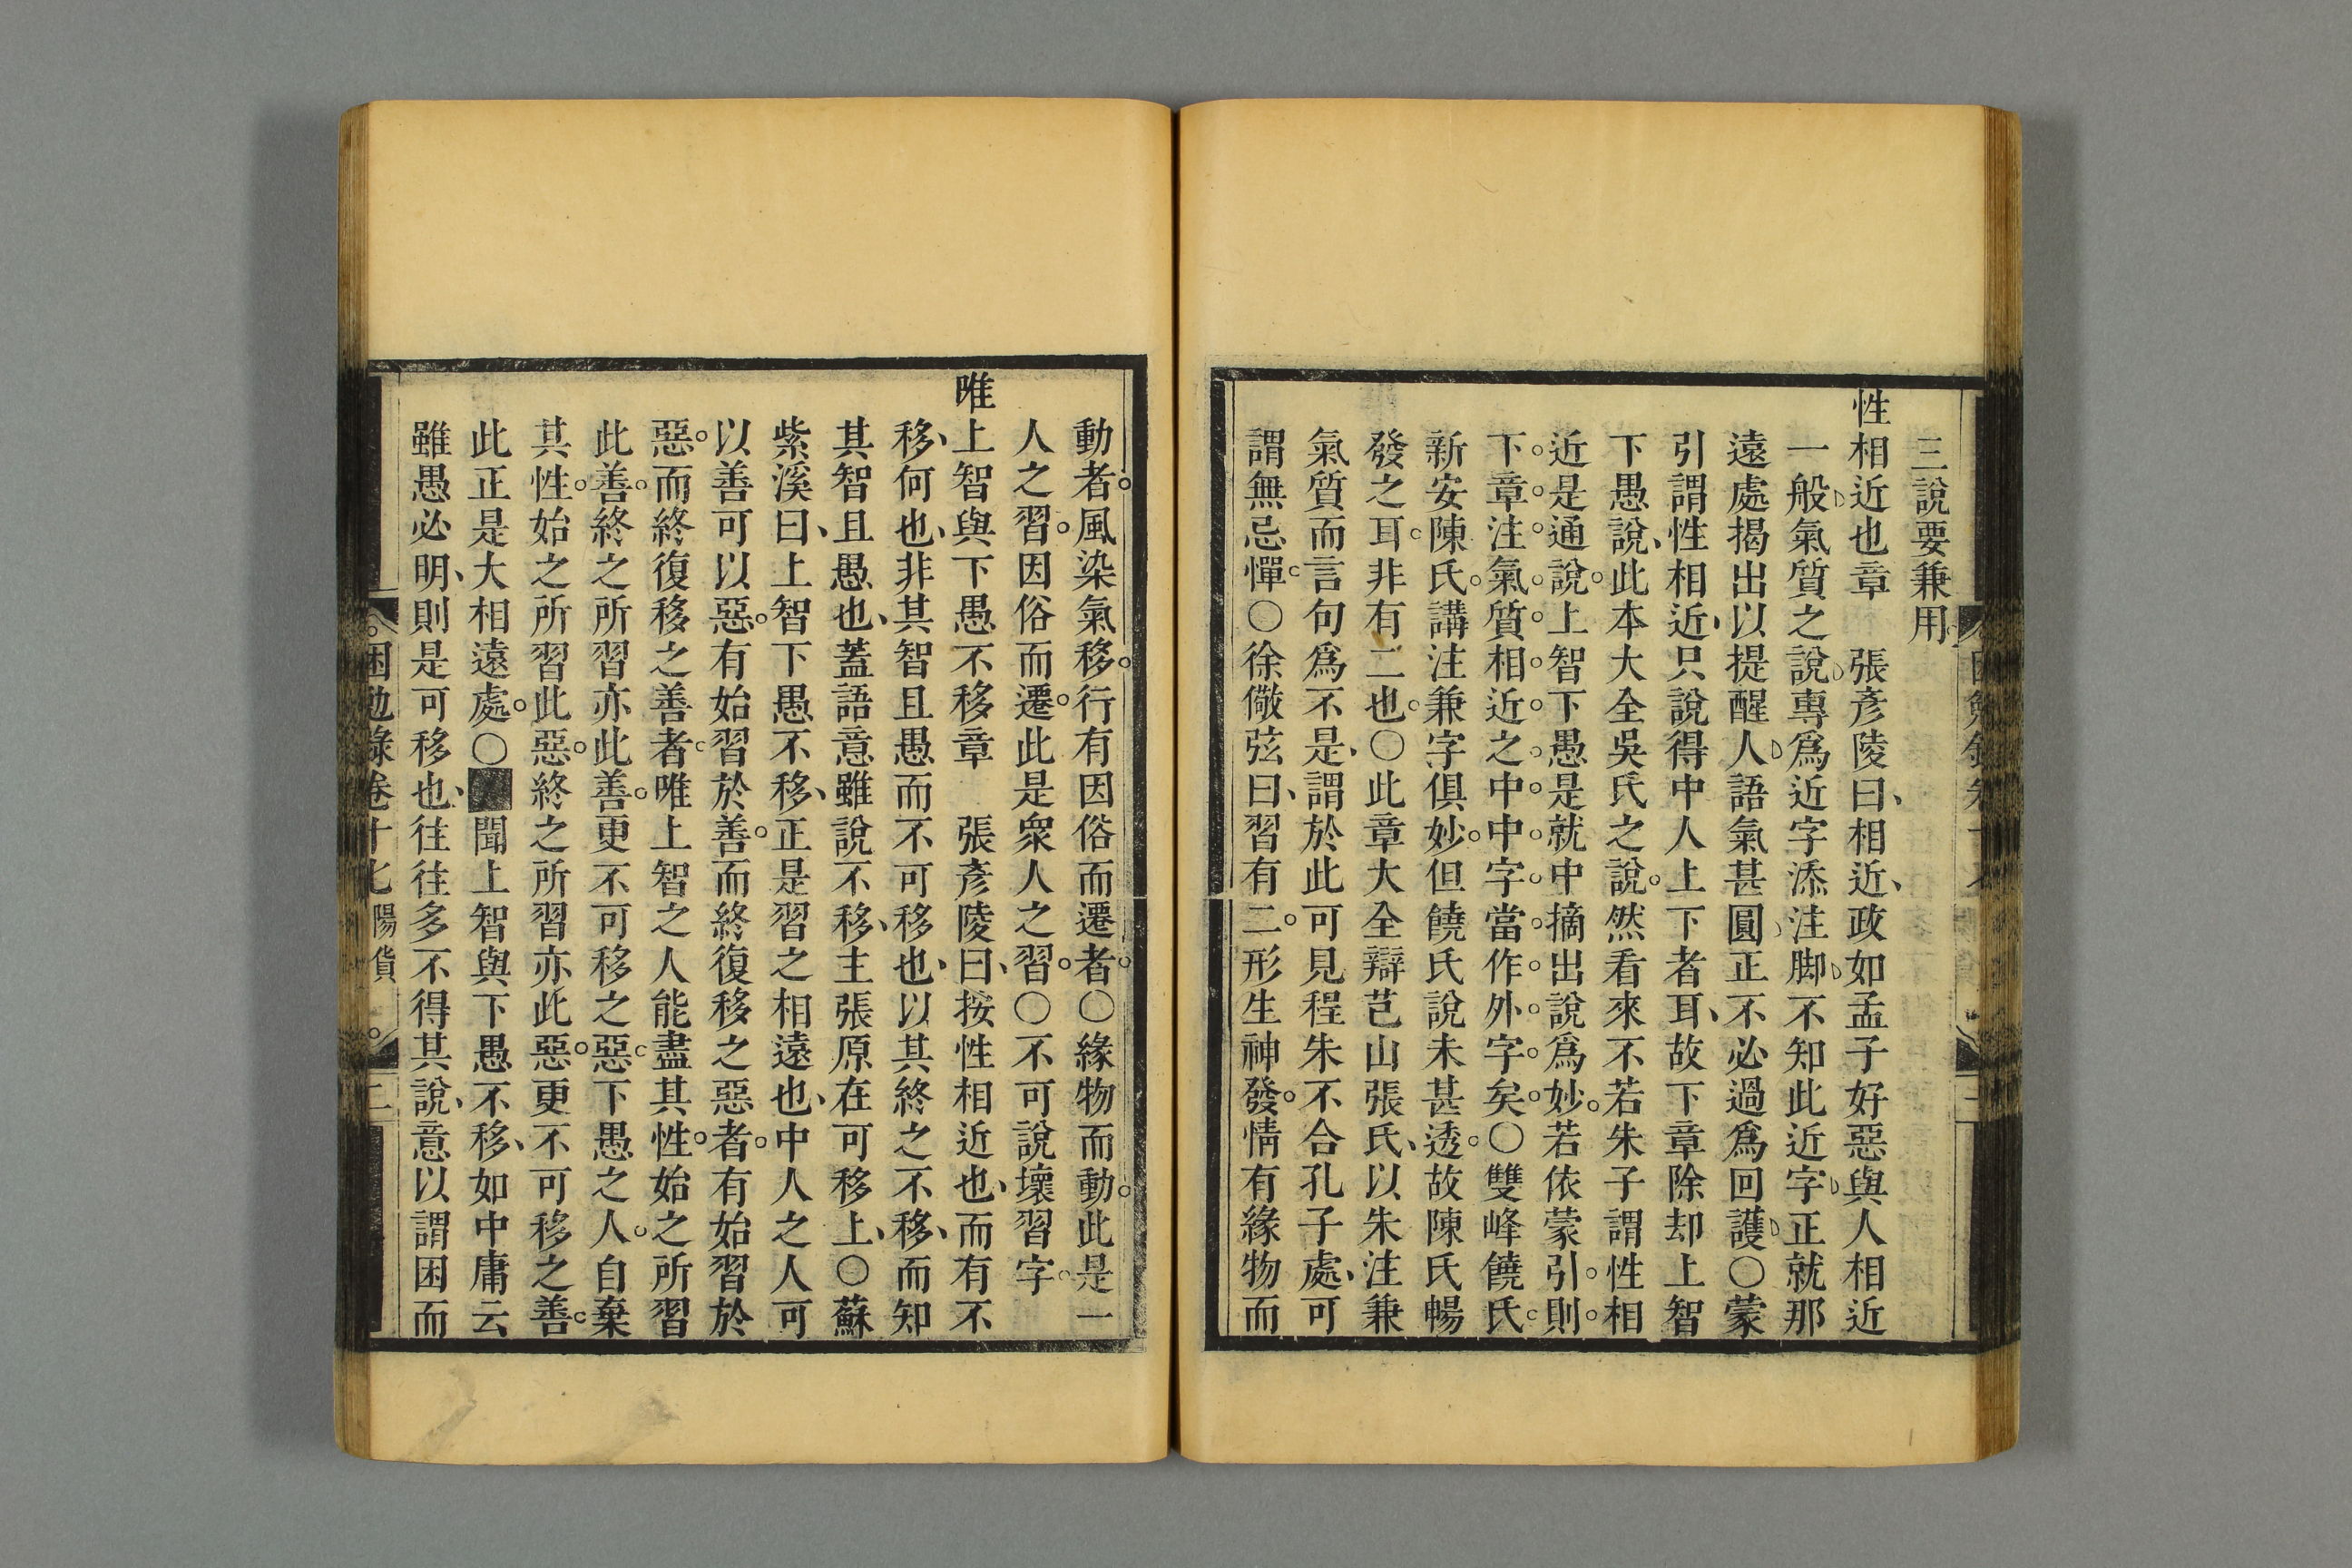 三說要兼用
性相近也章　張彥陵曰、相近、政如孟子好惡與人相近
一般氣質之說專爲近字添注脚不知此近字正就那
遠處揭出以提醒人語氣甚圓正不必過爲回護○蒙
引謂性相近、只說得中人上下者耳、故下章除却上智
下愚說、此本大全吳氏之說。然看來不若朱子謂性相
近是通說。上智下愚是就中摘出說爲妙。若依蒙引。則。
下。章。注。氣。質。相。近。之。中。中。字。當。作。外。字。矣。○雙峰饒氏
新安陳氏。講注兼字俱妙。但饒氏說未甚透。故陳氏暢
發之耳。非有二也。○此章大全辯芑山張氏、以朱注兼
氣質而言句爲不是、謂於此可見程朱不合孔子處、可
謂無忌憚。○徐儆弦曰、習有二。形生神發。情有緣物而
動者。風染氣移。行有因俗而遷者。○緣物而動。此是一
人之習。因俗而遷。此是衆人之習。○不可說壞習字。
唯上智與下愚不移章　張彥陵曰、按性相近也、而有不
移、何也、非其智且愚而不可移也、以其終之不移、而知
其智且愚也、蓋語意雖說不移、主張原在可移上、○蘇
紫溪曰、上智下愚不移、正是習之相遠也、中人之人可
以善可以惡。有始習於善。而終復移之惡者。有始習於
惡。而終復移之善者。唯上智之人能盡其性。始之所習
此善。終之所習亦此善。更不可移之惡。下愚之人。自棄
其性。始之所習此惡。終之所習亦此惡。更不可移之善。
此正是大相遠處。○聞上智與下愚不移、如中庸云
雖愚必明、則是可移也、往往多不得其說、意以謂困而
困勉錄卷十七　陽貨　二